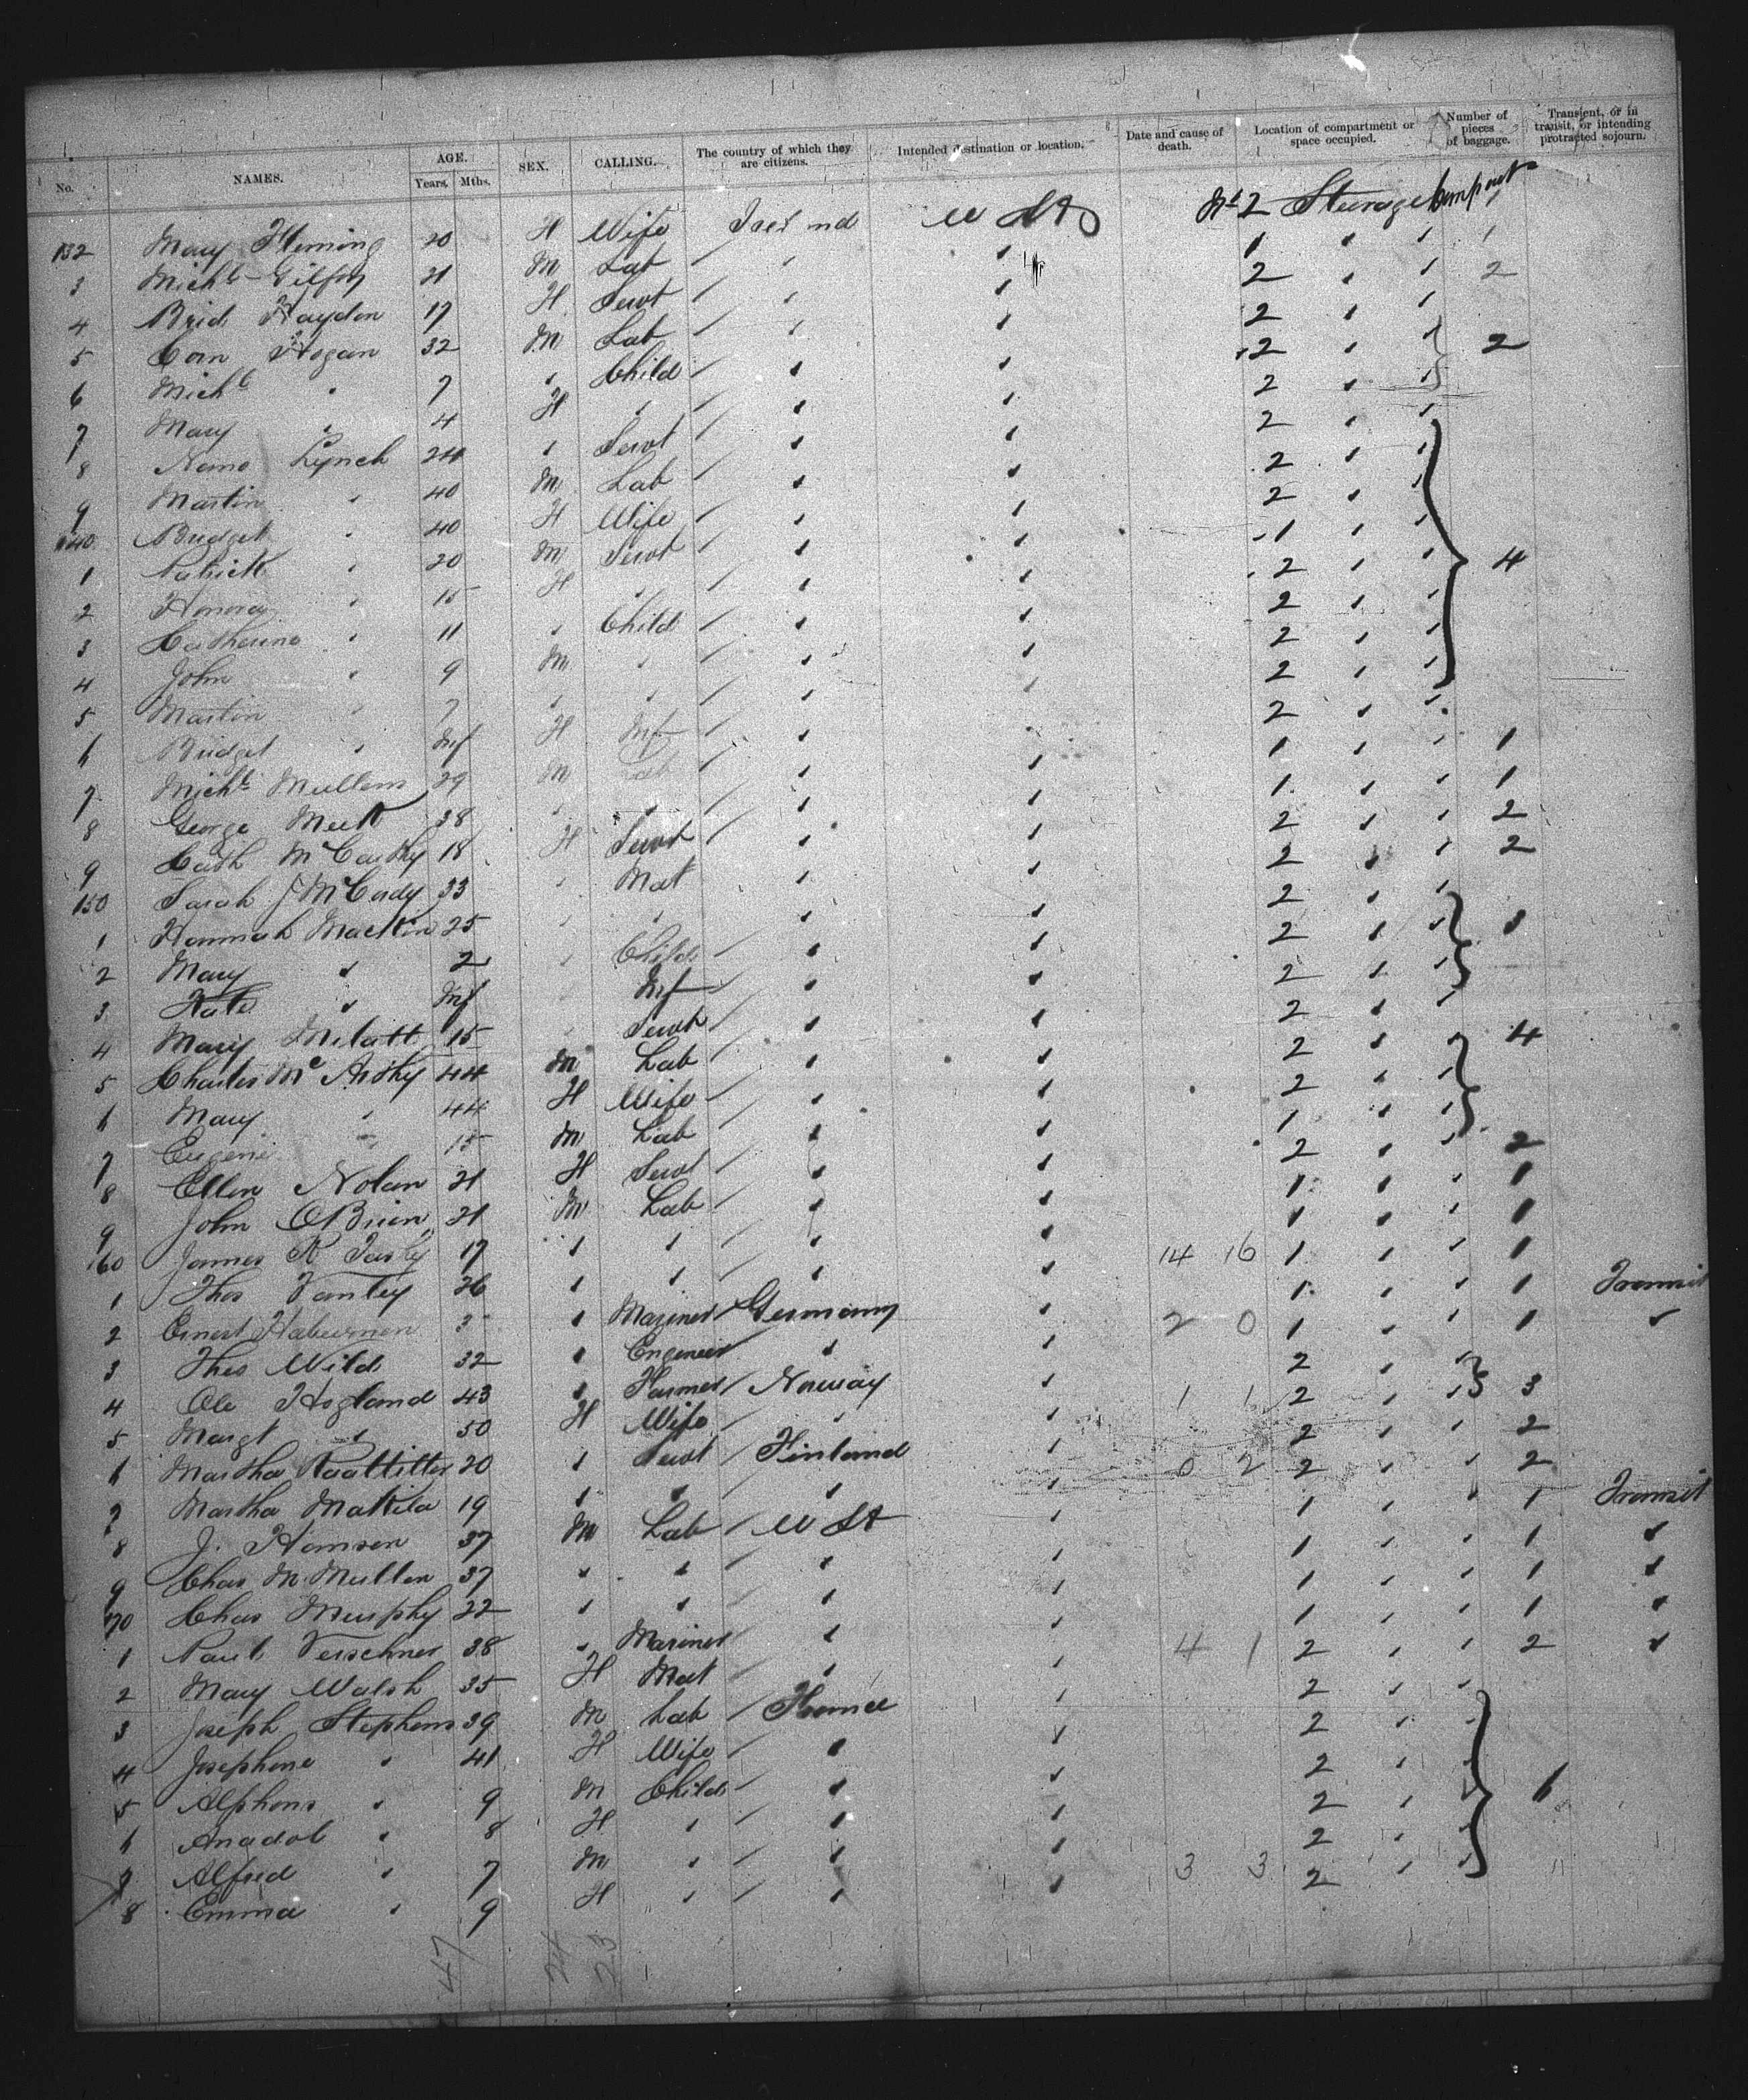 No. NAMES. AGE. Years. Mths. SEX. CALLING. The country of which they are citizens. Intended destination or location. Date and cause of death. Location of compartment or space occupied. Number of pieces of baggage. Transient, or in transit, or intending protracted sojourn.
No 2 Steerage Compart
132 Mary Fleming 20 H Wife Ireland U Sts 1 " " 1
3 Michl 21 M Lab / " " 2 " " 2
4 Brid Haydon 17 H Servt / " " 2 " "
5 Corn Hogan 32 M Lab / " " 2 " " 2
6 Michl " 7 " Child / " " 2 " "
7 Mary " 4 H " / " " 2 " "
8 Lynch 24 " Servt / " " 2 " "
9 Martin " 40 M Lab / " " 2 "
140 Bridget " 40 H Wife / " " 1 " "
1 Patrick " 20 M Servt / " " 2 " " 4
2 Honora " 15 H " / " " 2 " "
3 Catherine " 11 " Child / " " 2 " "
4 John " 9 M " / " " 2 " "
5 Martin " 7 " " / " " 2 " "
6 Bridget " Inf H Inf / " " 1 " " 1
7 Michl Mullens 29 M Lab / " " 1 " " 1
8 George 28 " " / " " 2 " " 2
9 Cath McCarthy 18 H Servt / " " 2 " " 2
150 Sarah J McCurdy 33 " Mat " " 2 " "
1 Hannah Mackin 25 " " " " 2 " " 1
2 Mary " 2 " Child / " " 2 " "
3 Kate " Inf Inf / " " 2 " "
4 Mary 15 " Servt / " " 2 " " 4
5 Charles Mc 44 M Lab / " " 2 " "
6 Mary " 44 H Wife / " " 1 " "
7 Eugene " 15 M Lab / " " 2 " " 2
8 Ellen Nolan 21 H Servt / " " 1 " " 1
9 John OBrien 21 M Lab / " " 1 " " 1
160 James R 17 " " / " " 14 16 1 " " 1
1 Thos 26 " " / " " 1 " " 1 Transit
2 Ernest Haberman " Mariner / Germany " 2 0 1 " " 1 "
3 Theo Wild 32 " Engineer / " " 2 " "
4 Ole Hogland 43 " Farmer / Norway " 1 1 2 " " 3 3
5 Margt " 50 H Wife " " 2 " " 2
6 Martha 20 " Servt / Finland " 0 2 2 " " 2
7 Martha Mattila 19 " " " " 1 " " 1 Transit
8 J. Hanson 37 M Lab / U St " 1 " " 1 "
9 Chas McMullen 37 " " / " " 1 " " 1 "
170 Chas Murphy 22 " " / " " 1 " " 1 "
1 Paul Verschner 38 " Mariner / " " 4 1 2 " " 2 "
2 Mary Walsh 35 H Mat " " 2 " "
3 Joseph Stephens 39 M Lab / France " 2 " "
4 Josephine " 41 H Wife / " " 2 " "
5 Alphons " 9 M Child / " " 2 " " 6
6 Anadol " 8 H " / " " 2 " "
7 Alfred " 7 M " / " " 3 3 2 " "
8 Emma " 9 H " / " "
47 24 23